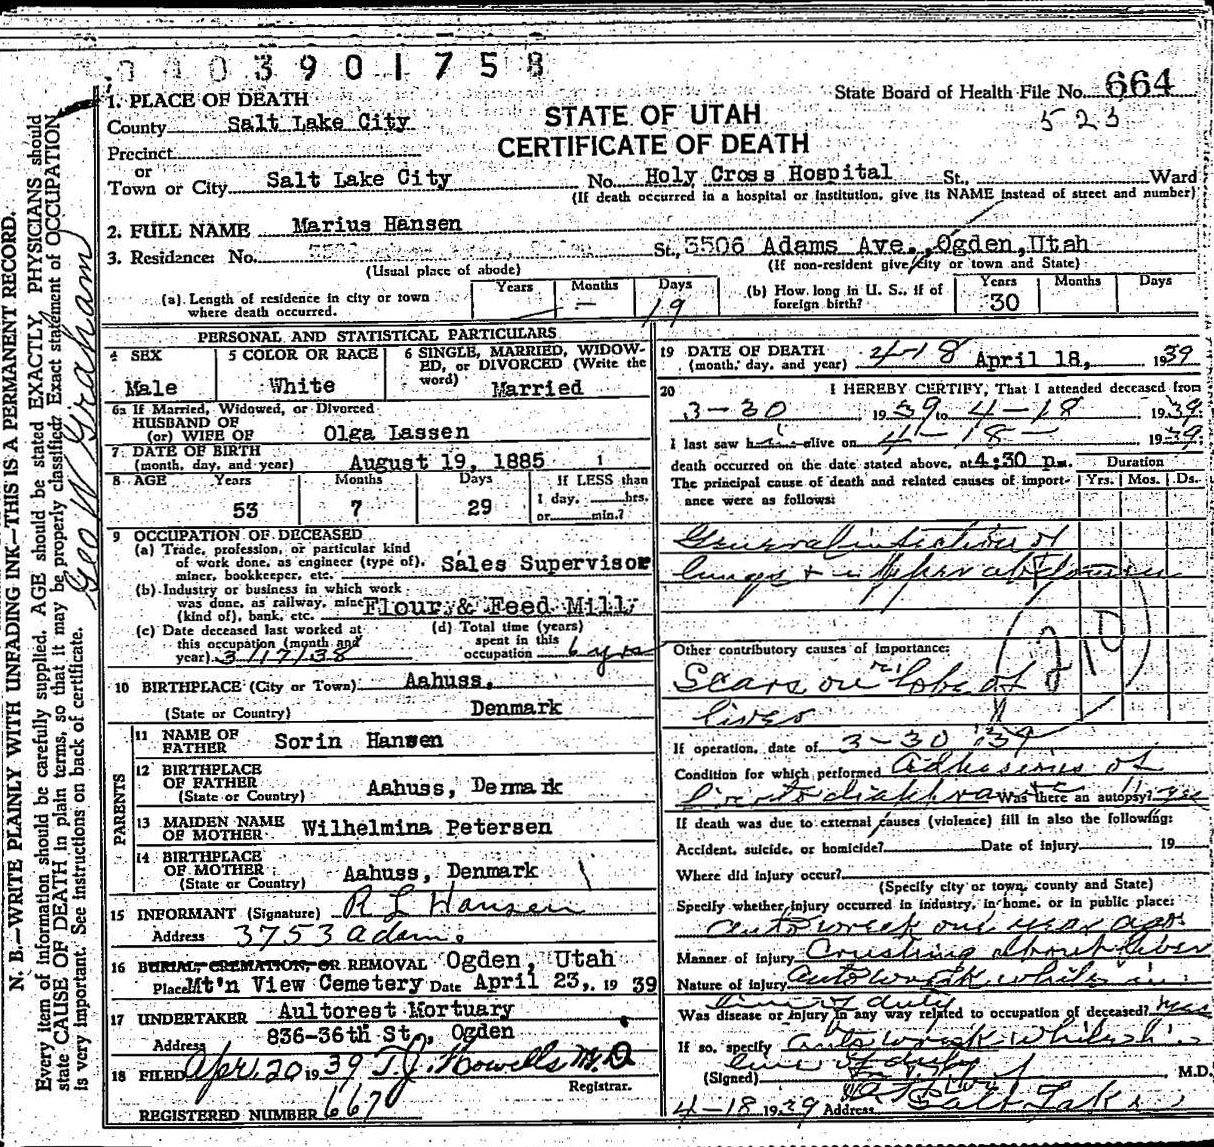 0403901758
State Board of Health File No. 664
523
STATE OF UTAH
CERTIFICATE OF DEATH
1. PLACE OF DEATH
County Salt Lake City
Precinct
or
Town or City Salt Lake City No. Holy Cross Hospital St., Ward
(If death occurred in a hospital or institution, give its NAME instead of street and number)
2. FULL NAME Marius Hansen
3. Residence: No. St., 3506 Adams Ave., Ogden, Utah
(Usual place of abode) (If non-resident give city or town and State)
(a) Length of residence in city or town where death occurred. Years Months Days
– 19
(b) How long in U. S., if of foreign birth? Years Months Days
30
PERSONAL AND STATISTICAL PARTICULARS
4 SEX
Male
5 COLOR OR RACE
White
6 SINGLE, MARRIED, WIDOW-
ED, or DIVORCED (Write the
word) Married
6a If Married, Widowed, or Divorced
HUSBAND OF
(or) WIFE OF Olga Lassen
7 DATE OF BIRTH
(month, day, and year) August 19, 1885
8 AGE Years Months Days If LESS than
1 day, hrs.
53 7 29 or min.?
9 OCCUPATION OF DECEASED
(a) Trade, profession, or particular kind
of work done, as engineer (type of),
miner, bookkeeper, etc. Sales Supervisor
(b) Industry or business in which work
was done, as railway, mine
(kind of), bank, etc. Flour & Feed Mill
(c) Date deceased last worked at
this occupation (month and
year) 3/17/38
(d) Total time (years)
spent in this
occupation 6 yrs
10 BIRTHPLACE (City or Town) Aahuss,
(State or Country) Denmark
PARENTS
11 NAME OF
FATHER Sorin Hansen
12 BIRTHPLACE
OF FATHER
(State or Country) Aahuss, Denmark
13 MAIDEN NAME
OF MOTHER Wilhelmina Petersen
14 BIRTHPLACE
OF MOTHER
(State or Country) Aahuss, Denmark
15 INFORMANT (Signature) R L Hansen
Address 3753 Adams
16 BURIAL, CREMATION, OR REMOVAL Ogden, Utah
Place Mt'n View Cemetery Date April 23, 1939
17 UNDERTAKER Aultorest Mortuary
Address 836-36th St., Ogden
18 FILED Apr. 20 1939 T.J. Howells M.D
Registrar.
REGISTERED NUMBER 667
19 DATE OF DEATH
(month, day, and year) 4-18 April 18, 1939
20 I HEREBY CERTIFY, That I attended deceased from
3-30 1939 to 4-18 1939
I last saw him alive on 4-18- 1939
death occurred on the date stated above, at 4:30 p.m. Duration
The principal cause of death and related causes of import-
ance were as follows: Yrs. Mos. Ds.
General infection of
lungs & upper abdomen
Other contributory causes of importance:
Scars on rt lobe of
liver
If operation, date of 3-30 '39
Condition for which performed Adhesions of
liver to diaphram Was there an autopsy? yes
If death was due to external causes (violence) fill in also the following:
Accident, suicide, or homicide? Date of injury 19
Where did injury occur?
(Specify city or town, county and State)
Specify whether injury occurred in industry, in home, or in public place:
auto wreck one year ago
Manner of injury Crushing about liver
Nature of injury auto wreck while in
line of duty
Was disease or injury in any way related to occupation of deceased? yes
If so, specify auto wreck while in
line of duty
(Signed) M.D.
4-18 1939 Address Salt Lake
N. B.—WRITE PLAINLY WITH UNFADING INK—THIS IS A PERMANENT RECORD.
Every item of information should be carefully supplied. AGE should be stated EXACTLY. PHYSICIANS should
state CAUSE OF DEATH in plain terms, so that it may be properly classified. Exact statement of OCCUPATION
is very important. See instructions on back of certificate.
Geo W Graham